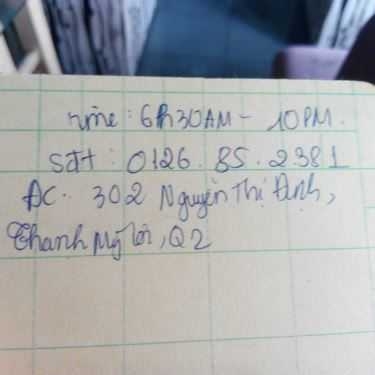 Time: 6h30AM - 10PM.
Sđt: 0126.85.2381
ĐC. 302 Nguyễn Thị Định,
Thanh Mỹ Lợi, Q2